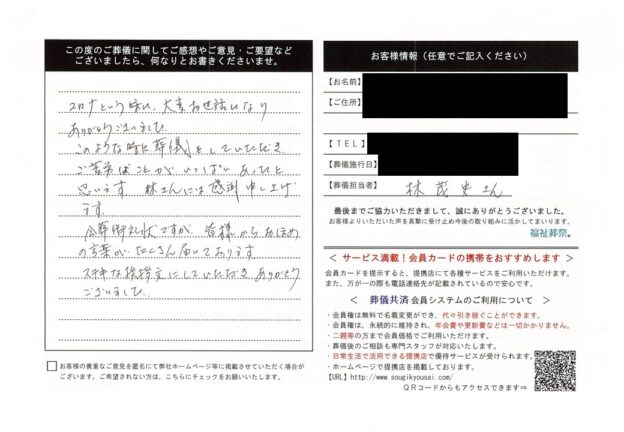 この度のご葬儀に関してご感想やご意見・ご要望など
ございましたら、何なりとお書きくださいませ。
コロナという時に、大変お世話になり
ありがとうございました。
このような時に葬儀をしていただき
ご苦労なことがいっぱいあったと
思います 林さんには感謝申し上げ
ます。
会葬御礼状ですが 皆様からおほめ
の言葉がたくさん届いております。
ステキな挨拶文にしていただき ありがとう
ございました。
お客様の貴重なご意見を匿名にて弊社ホームページ等に掲載させていただく場合が
ございます。ご希望されない方は、こちらにチェックをお願いいたします。
お客様情報（任意でご記入ください）
【お名前】
【ご住所】
【TEL】
【葬儀施行日】
【葬儀担当者】 林 茂史さん
最後までご協力いただきまして、誠にありがとうございました。
お客様よりいただいた声を真摯に受け止め今後の取り組みに活かしてまいります。
福祉葬祭。
＜ サービス満載！会員カードの携帯をおすすめします ＞
会員カードを提示すると、提携店にて各種サービスをご利用いただけます。
また、万が一の際も電話連絡先が記載されているので安心です。
＜ 葬儀共済 会員システムのご利用について ＞
・会員権は無料で名義変更ができ、代々引き継ぐことができます。
・会員権は、永続的に維持され、年会費や更新費などは一切かかりません。
・二親等の方まで会員価格でご利用いただけます。
・葬儀後のご相談も専門スタッフが対応いたします。
・日常生活で活用できる提携店で優待サービスが受けられます。
・ホームページで提携店を掲載しております。
【URL】http://www.sougikyousai.com/
QRコードからもアクセスできます⇒